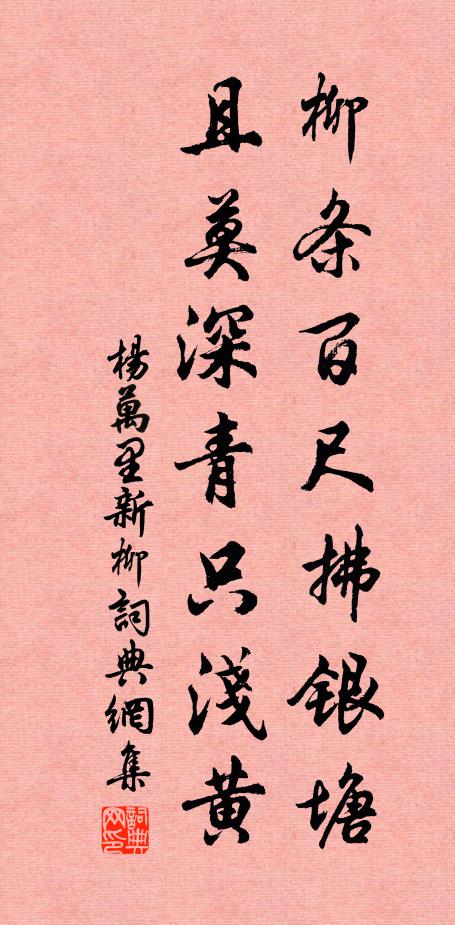 柳条百尺拂银塘
且莫深青只淺黄
楊萬里新柳詞典網集
詞典网印